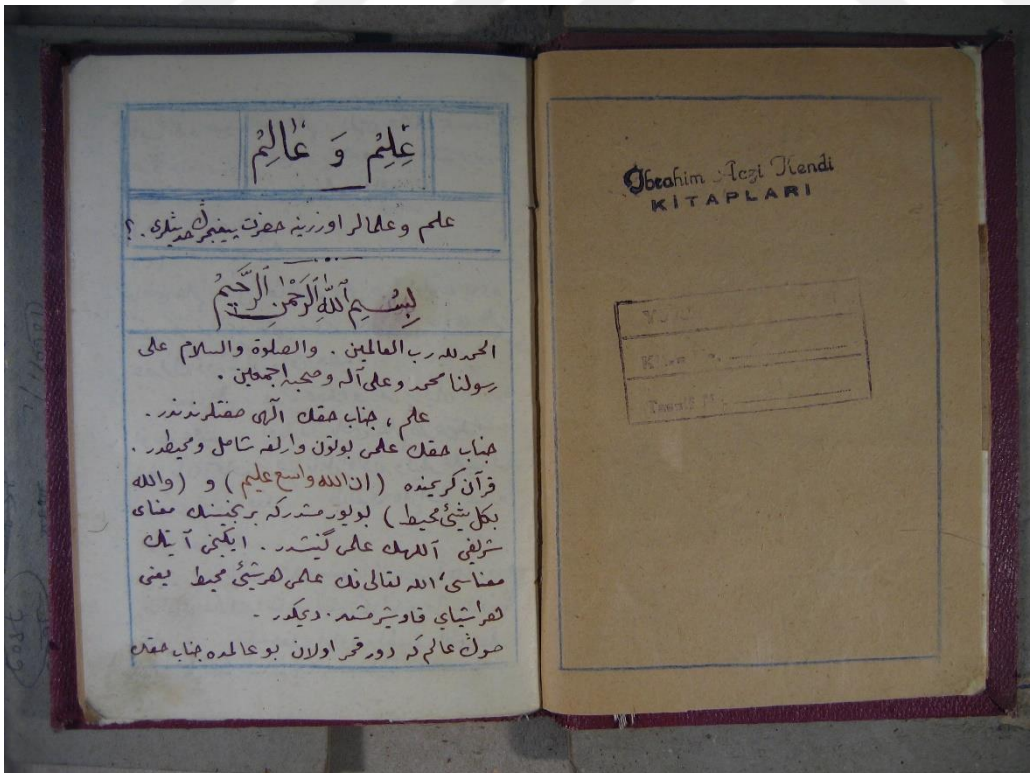 عِلِمْ وَ عَالِمْ
علم وعلمالر اوزرينه حضرت پيغمبرڭ حديثلرى . ؟
بِسْمِ ٱللّٰهِ ٱلرَّحْمٰنِ ٱلرَّحِيمْ
الحمد لله رب العالمين . والصلوة والسلام على
رسولنا محمد وعلى آله وصحبه اجمعين .
علم ، جناب حقك آلهى صفتلرندندر .
جناب حقك علمى بوتون وارلغه شامل ومحيطدر .
قرآن كريمنده (ان الله واسع عليم) و (والله
بكل شيئ محيط) بويورمشدركه برنجيسنك معناى
شريفى آللهك علمى گنيشدر . ايكنجى آيتك
معناسى، الله تعالى نك علمى هر شيئ محيط يعنى
هر اشياى قاوشرمشدر . ديمكدر .
صوڭ عالم كه دور قمر اولان بو عالمده جناب حقك
Ibrahim Aczi Kendi
KİTAPLARI